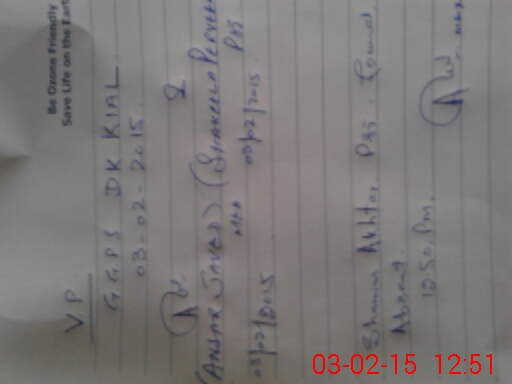 Be Ozone Friendly
Save Life on the Eart
V.P.
GGPS DK KIAL
03-02-2015.
(ANSAR JAVED) (SHAKEELA PERVEEN
MEA PST
03/02/2015 03/02/2015
Shamim Akhtar PST. Found
Absent.
12:50 Pm.
03-02-15 12:51